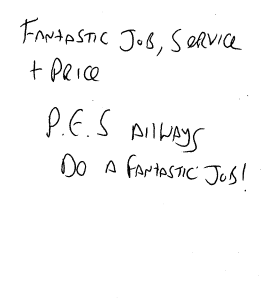 FANTASTIC JOB, SERVICE
+ PRICE
P.E.S AllWAYS
DO A FANTASTIC JOB!